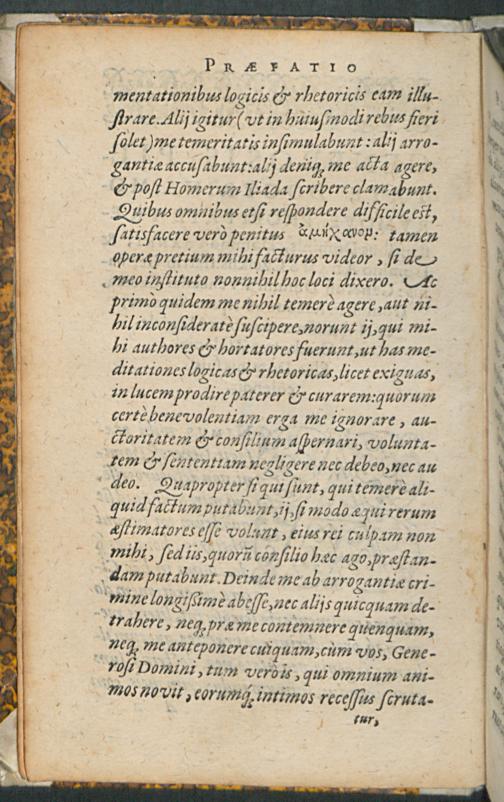 PRÆFATIO
mentationibus logicis & rhetoricis eam illu-
ſtrare. Alij igitur (vt in huiuſmodi rebus fieri
ſolet) me temeritatis inſimulabunt: alij arro-
gantiæ accuſabunt: alij deniq; me acta agere,
& poſt Homerum Iliada ſcribere clamabunt.
Quibus omnibus etſi reſpondere difficile eſt,
ſatisfacere verò penitus ἀμήχανον: tamen
operæ pretium mihi facturus videor, ſi de
meo inſtituto nonnihil hoc loci dixero. Ac
primò quidem me nihil temerè agere, aut ni-
hil inconſideratè ſuſcipere, norunt ij, qui mi-
hi authores & hortatores fuerunt, ut has me-
ditationes logicas & rhetoricas, licet exiguas,
in lucem prodire paterer & curarem: quorum
certè benevolentiam erga me ignorare, au-
ctoritatem & conſilium aſpernari, volunta-
tem & ſententiam negligere nec debeo, nec au
deo. Quapropter ſi qui ſunt, qui temerè ali-
quid factum putabunt, ij, ſi modo æqui rerum
æſtimatores eſſe volunt, eius rei culpam non
mihi, ſed iis, quorũ conſilio hæc ago, præſtan-
dam putabunt. Deinde me ab arrogantiæ cri-
mine longiſſimè abeſſe, nec alijs quicquam de-
trahere, neq; præ me contemnere quenquam,
neq; me anteponere cuiquam, cùm vos, Gene-
roſi Domini, tum verò is, qui omnium ani-
mos novit, eorumq; intimos receſſus ſcruta-
tur,